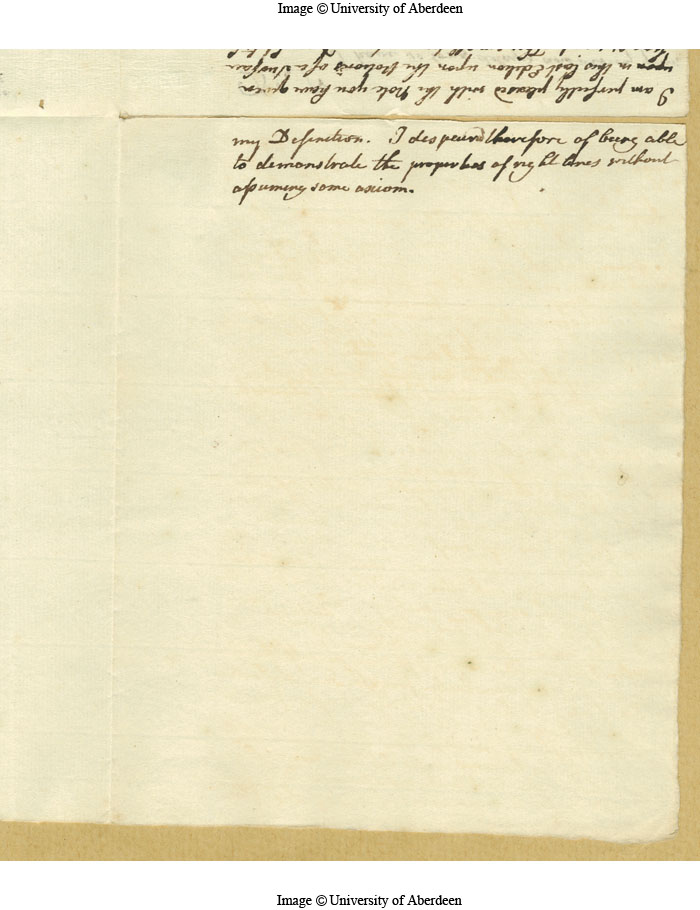 Image © University of Aberdeen
I am perfectly pleased with the Note you have given
upon in this last Edition upon the Notions of a Surface
my Definition. I despeared therefore of being able
to demonstrate the properties of right lines without
assuming some axiom.
Image © University of Aberdeen